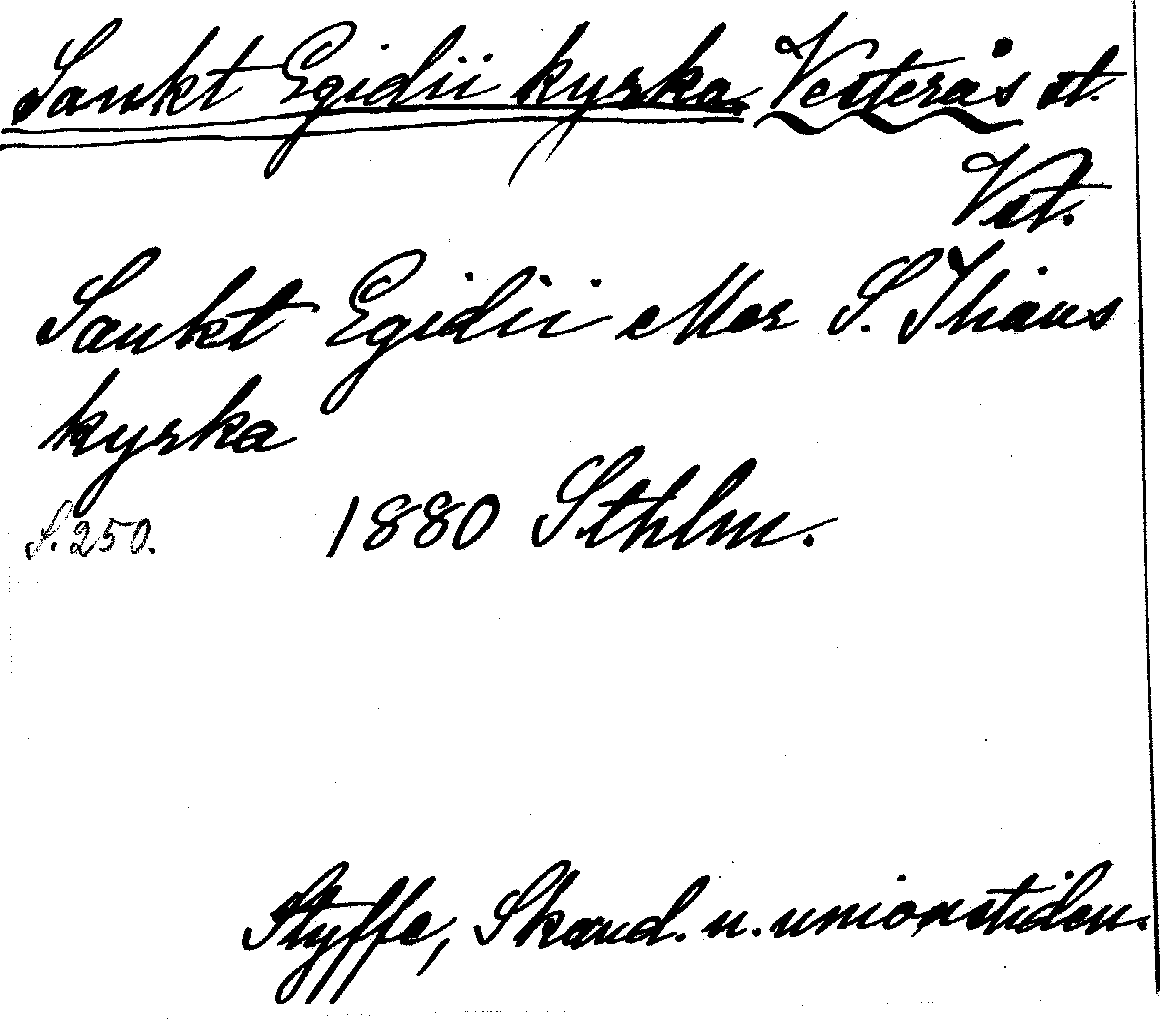 Sankt Egidii kyrka Vesterås st.
Vst.
Sankt Egidii eller S. Ilians
kyrka
S. 250. 1880 Sthlm.
Styffe, Skand. u. unionstiden.